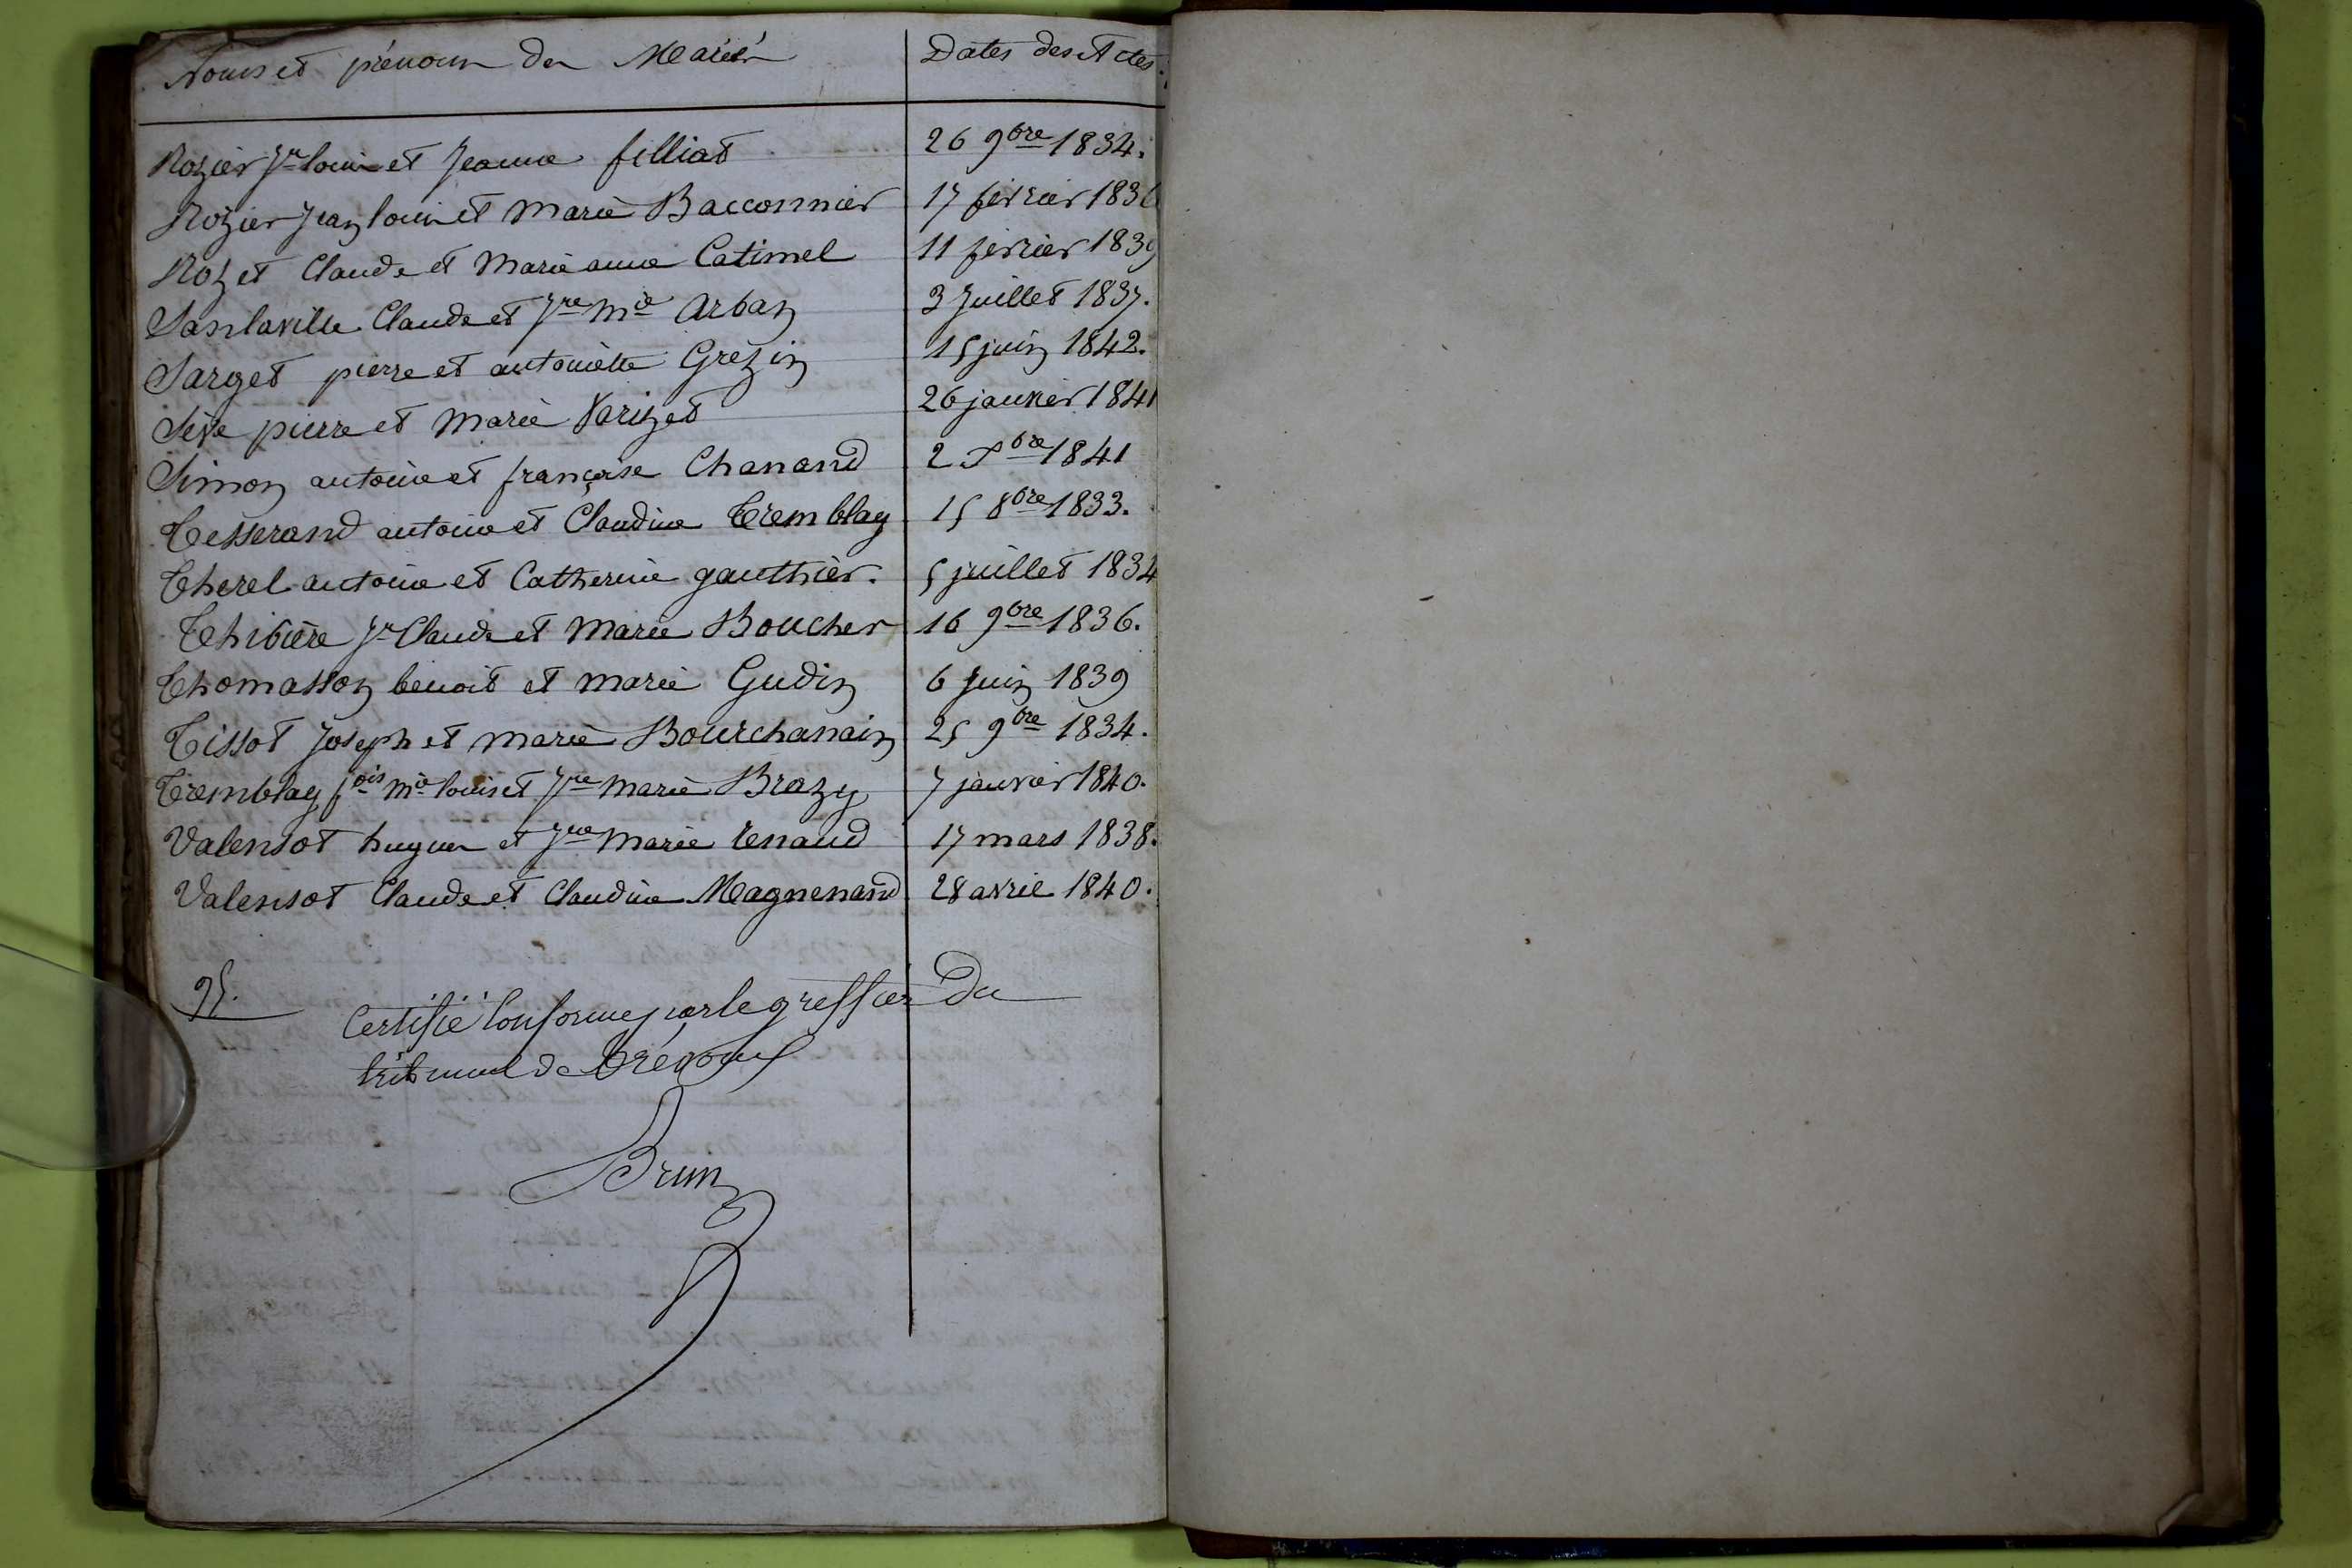 Noms et prénoms des Mariés Dates des Actes.
Rozier Jn louis et Jeanne filliat 26 9bre 1834.
Rozier Jean louis et Marie Bacconnier 17 février 1836
Rozet Claude et Marie anne Catimel 11 février 1839
Sanlaville Claude et Jne Mie Arban 3 Juillet 1837.
Sarget pierre et antoinette Grezin 15 juin 1842.
Sève pierre et Marie Varizet 26 janvier 1841
Simon antoine et françoise Chanand 2 Xbre 1841
Tesserand antoine et Claudine Tremblay 15 8bre 1833.
Therel antoine et Catherine gauthier. 5 juillet 1834
Thibière Jn Claude et Marie Boucher 16 9bre 1836.
Thomasson benoit et Marie Gudin 6 Juin 1839
Tissot Joseph et Marie Bourchanain 25 9bre 1834.
Tremblay fois Mie louis et Jne Marie Brazy 7 janvier 1840.
Valensot hugues et Jne Marie Renaud 17 mars 1838.
Valensot Claude et Claudine Magnenand 28 avril 1840.
95.
Certifié Conforme par le greffier du
tribunal de Trévoux
Brun